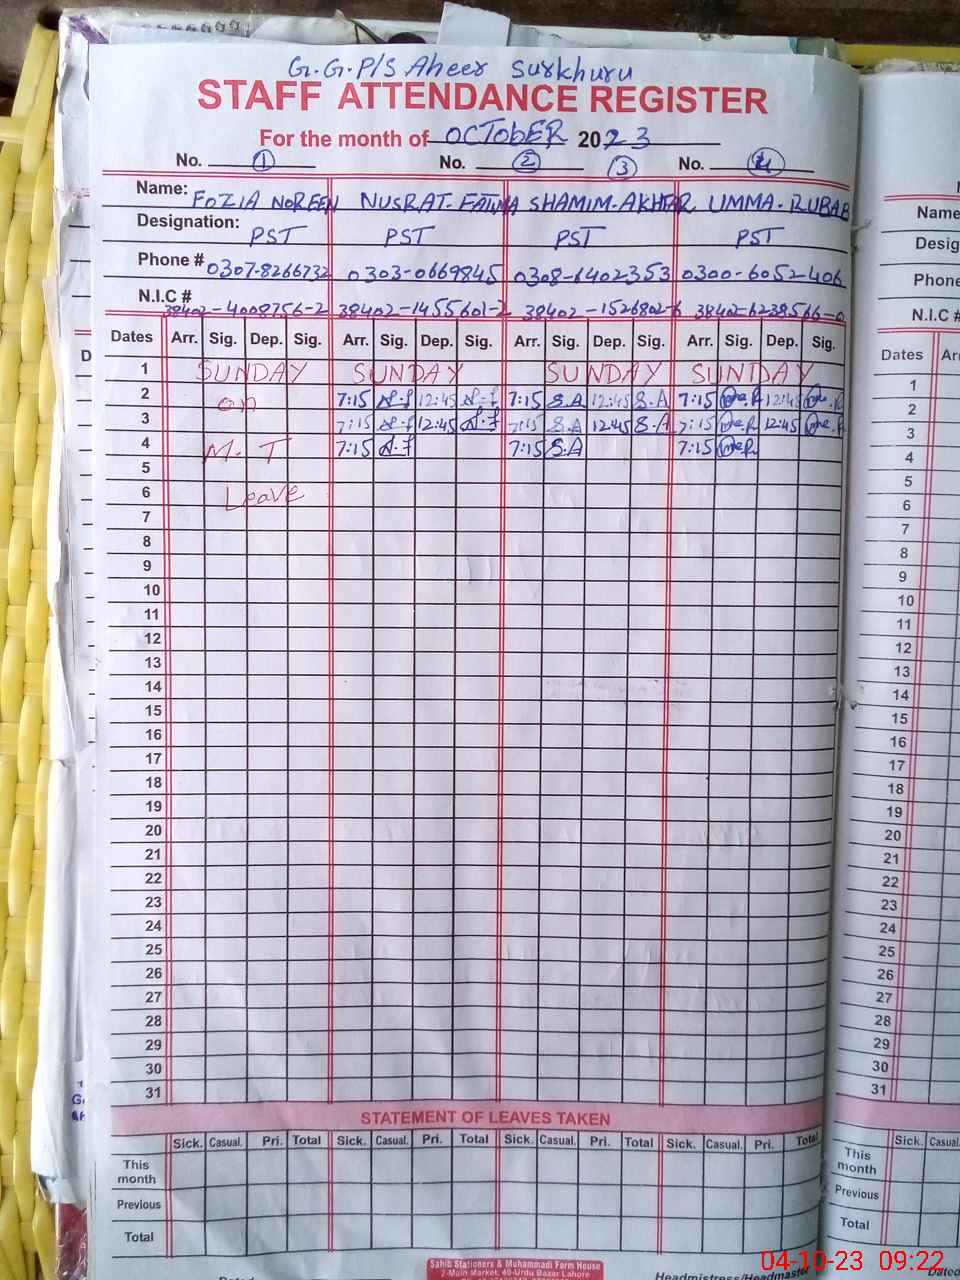 G.G.P/S Aheer Surkhuru
STAFF ATTENDANCE REGISTER
For the month of OCTobER 2023
No. 1 No. 2 3 No. 4
Name: FOZIA NOREEN NUSRAT. FATIMA SHAMIM. AKHTAR UMMA. RUBAB
Designation: PST PST PST PST
Phone # 0307-8266732 0303-0669845 0308-6402353 0300-6052406
N.I.C # 38402-4008756-2 38402-1455601-2 38402-1526802-6 38402-6238566-0
Dates Arr. Sig. Dep. Sig. Arr. Sig. Dep. Sig. Arr. Sig. Dep. Sig. Arr. Sig. Dep. Sig.
1 SUNDAY SUNDAY SUNDAY SUNDAY
2 on 7:15 N.f 12:45 N.f 7:15 S.A 12:45 S.A 7:15 12:45
3 7:15 N.f 12:45 N.f 7:15 S.A 12:45 S.A 7:15 12:45
4 M. T 7:15 N.f 7:15 S.A 7:15
5
6 Leave
7
8
9
10
11
12
13
14
15
16
17
18
19
20
21
22
23
24
25
26
27
28
29
30
31
STATEMENT OF LEAVES TAKEN
Sick. Casual. Pri. Total Sick. Casual. Pri. Total Sick. Casual. Pri. Total Sick. Casual. Pri. Total
This month
Previous
Total
Sahib Stationers & Muhammadi Farm House
2-Main Market, 40-Urdu Bazar Lahore
Headmistress/Headmaster
Name
Desig
Phone
N.I.C #
Dates
1
2
3
4
5
6
7
8
9
10
11
12
13
14
15
16
17
18
19
20
21
22
23
24
25
26
27
28
29
30
31
Sick. Casual.
This month
Previous
Total
Dated
04-10-23 09:22